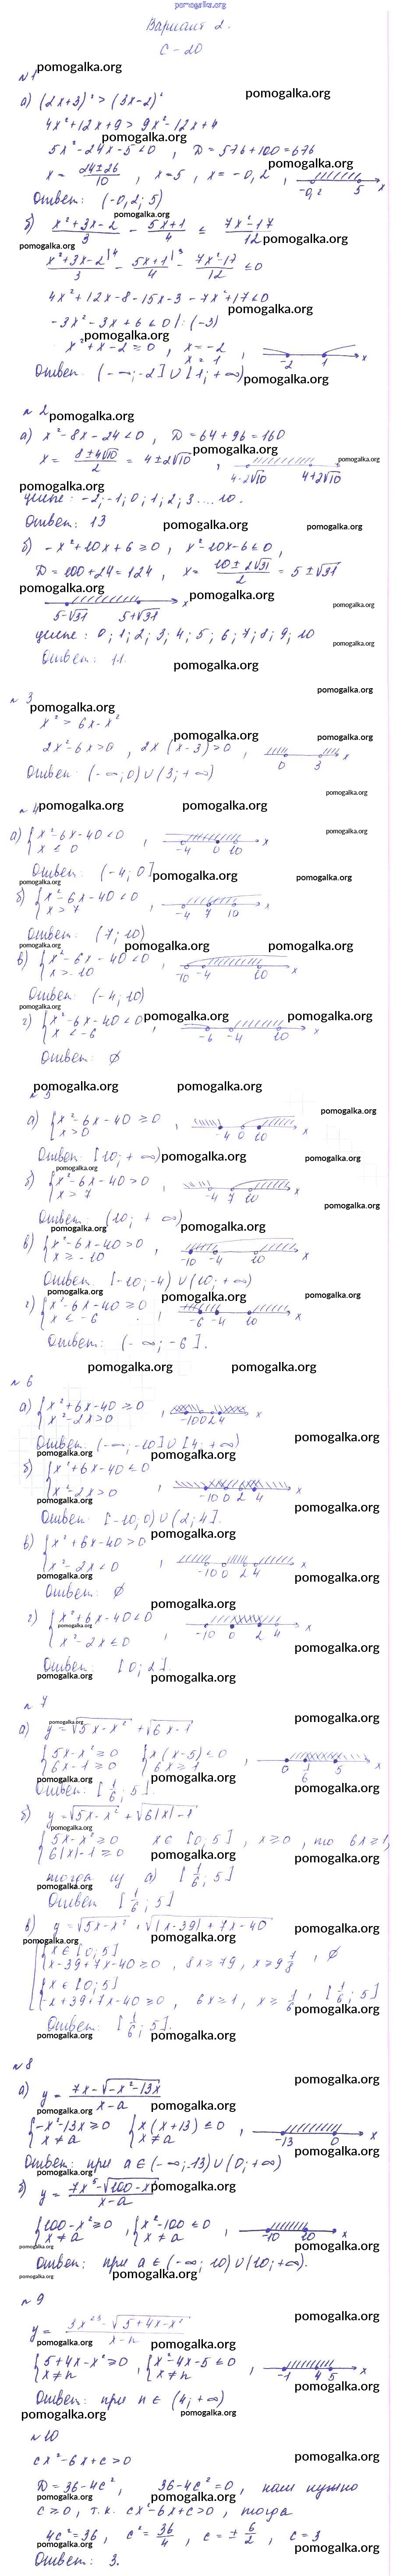 pomogalka.org
Вариант 2.
С - 20
№1
а) (2x+3)² > (3x-2)²
4x²+12x+9 > 9x²-12x+4
5x²-24x-5<0, D=576+100=676
x = (24±26)/10, x=5, x=-0,2,
-0,2 5 x
Ответ: (-0,2; 5)
б) (x²+3x-2)/3 - (5x+1)/4 ≤ (7x²-17)/12
(x²+3x-2)/3 |4 - (5x+1)/4 |3 - (7x²-17)/12 ≤0
4x²+12x-8-15x-3-7x²+17≤0
-3x²-3x+6≤0 |:(-3)
x²+x-2≥0, x=-2
x=1,
-2 1 x
Ответ: (-∞;-2]∪[1;+∞)
№2
а) x²-8x-24<0, D=64+96=160
x = (8±4√10)/2 = 4±2√10,
4-2√10 4+2√10
целые: -2;-1; 0; 1; 2; 3 .... 10.
Ответ: 13
б) -x²+10x+6≥0, x²-10x-6≤0,
D=100+24=124, x = (10±2√31)/2 = 5±√31
5-√31 5+√31 x
целые: 0; 1; 2; 3; 4; 5; 6; 7; 8; 9; 10
Ответ: 11
№3
x² > 6x-x²
2x²-6x>0, 2x(x-3)>0,
0 3 x
Ответ: (-∞; 0)∪(3; +∞)
№4
а) {x²-6x-40<0
x≤0
-4 0 10 x
Ответ: (-4; 0]
б) {x²-6x-40<0
x>7
-4 7 10 x
Ответ: (7; 10)
в) {x²-6x-40<0
x>-10
-10 -4 10 x
Ответ: (-4; 10)
г) {x²-6x-40<0
x<-6
-6 -4 10 x
Ответ: ∅
№5
а) {x²-6x-40≥0
x>0
-4 0 10 x
Ответ: [10; +∞)
б) {x²-6x-40>0
x>7
-4 7 10 x
Ответ: (10; +∞)
в) {x²-6x-40>0
x≥-10
-10 -4 10 x
Ответ: [-10;-4)∪(10; +∞)
г) {x²-6x-40≥0
x≤-6
-6 -4 10 x
Ответ: (-∞; -6].
№6
а) {x²+6x-40≥0
x²-2x>0
-10 0 2 4 x
Ответ: (-∞;-10]∪[4; +∞)
б) {x²+6x-40≤0
x²-2x>0
-10 0 2 4 x
Ответ: [-10; 0)∪(2; 4].
в) {x²+6x-40>0
x²-2x<0
-10 0 2 4 x
Ответ: ∅
г) {x²+6x-40<0
x²-2x≤0
-10 0 2 4 x
Ответ: [0; 2].
№7
а) y=√(5x-x²) + √(6x-1)
{5x-x²≥0 {x(x-5)≤0
6x-1≥0 6x≥1
0 1/6 5 x
Ответ: [1/6; 5].
б) y=√(5x-x²) + √(6|x|-1)
{5x-x²≥0 x∈[0; 5], x≥0, то 6x≥1,
6|x|-1≥0
тогда из а) [1/6; 5]
Ответ [1/6; 5]
в) y=√(5x-x²) + √(|x-39|+7x-40)
{x∈[0; 5]
x-39+7x-40≥0, 8x≥79, x≥9 7/8, ∅
{x∈[0; 5]
-x+39+7x-40≥0, 6x≥1, x≥1/6, [1/6; 5]
Ответ: [1/6; 5].
№8
а) y = (7x-√(-x²-13x))/(x-a)
{-x²-13x≥0 {x(x+13)≤0
x≠a x≠a
-13 0 x
Ответ: при a∈(-∞;-13)∪(0; +∞)
б) y = (7x⁵-√(100-x²))/(x-a)
{100-x²≥0, {x²-100≤0
x≠a x≠a
-10 10 x
Ответ: при a∈(-∞; 10)∪(10; +∞).
№9
y = (3x²³-√(5+4x-x²))/(x-n)
{5+4x-x²≥0, {x²-4x-5≤0
x≠n x≠n
-1 4 5 x
Ответ: при n∈(4; +∞)
№10
cx²-6x+c>0
D=36-4c², 36-4c²=0, нам нужно
c≥0, т.к. cx²-6x+c>0, тогда
4c²=36, c²=36/4, c=±6/2, c=3
Ответ: 3.